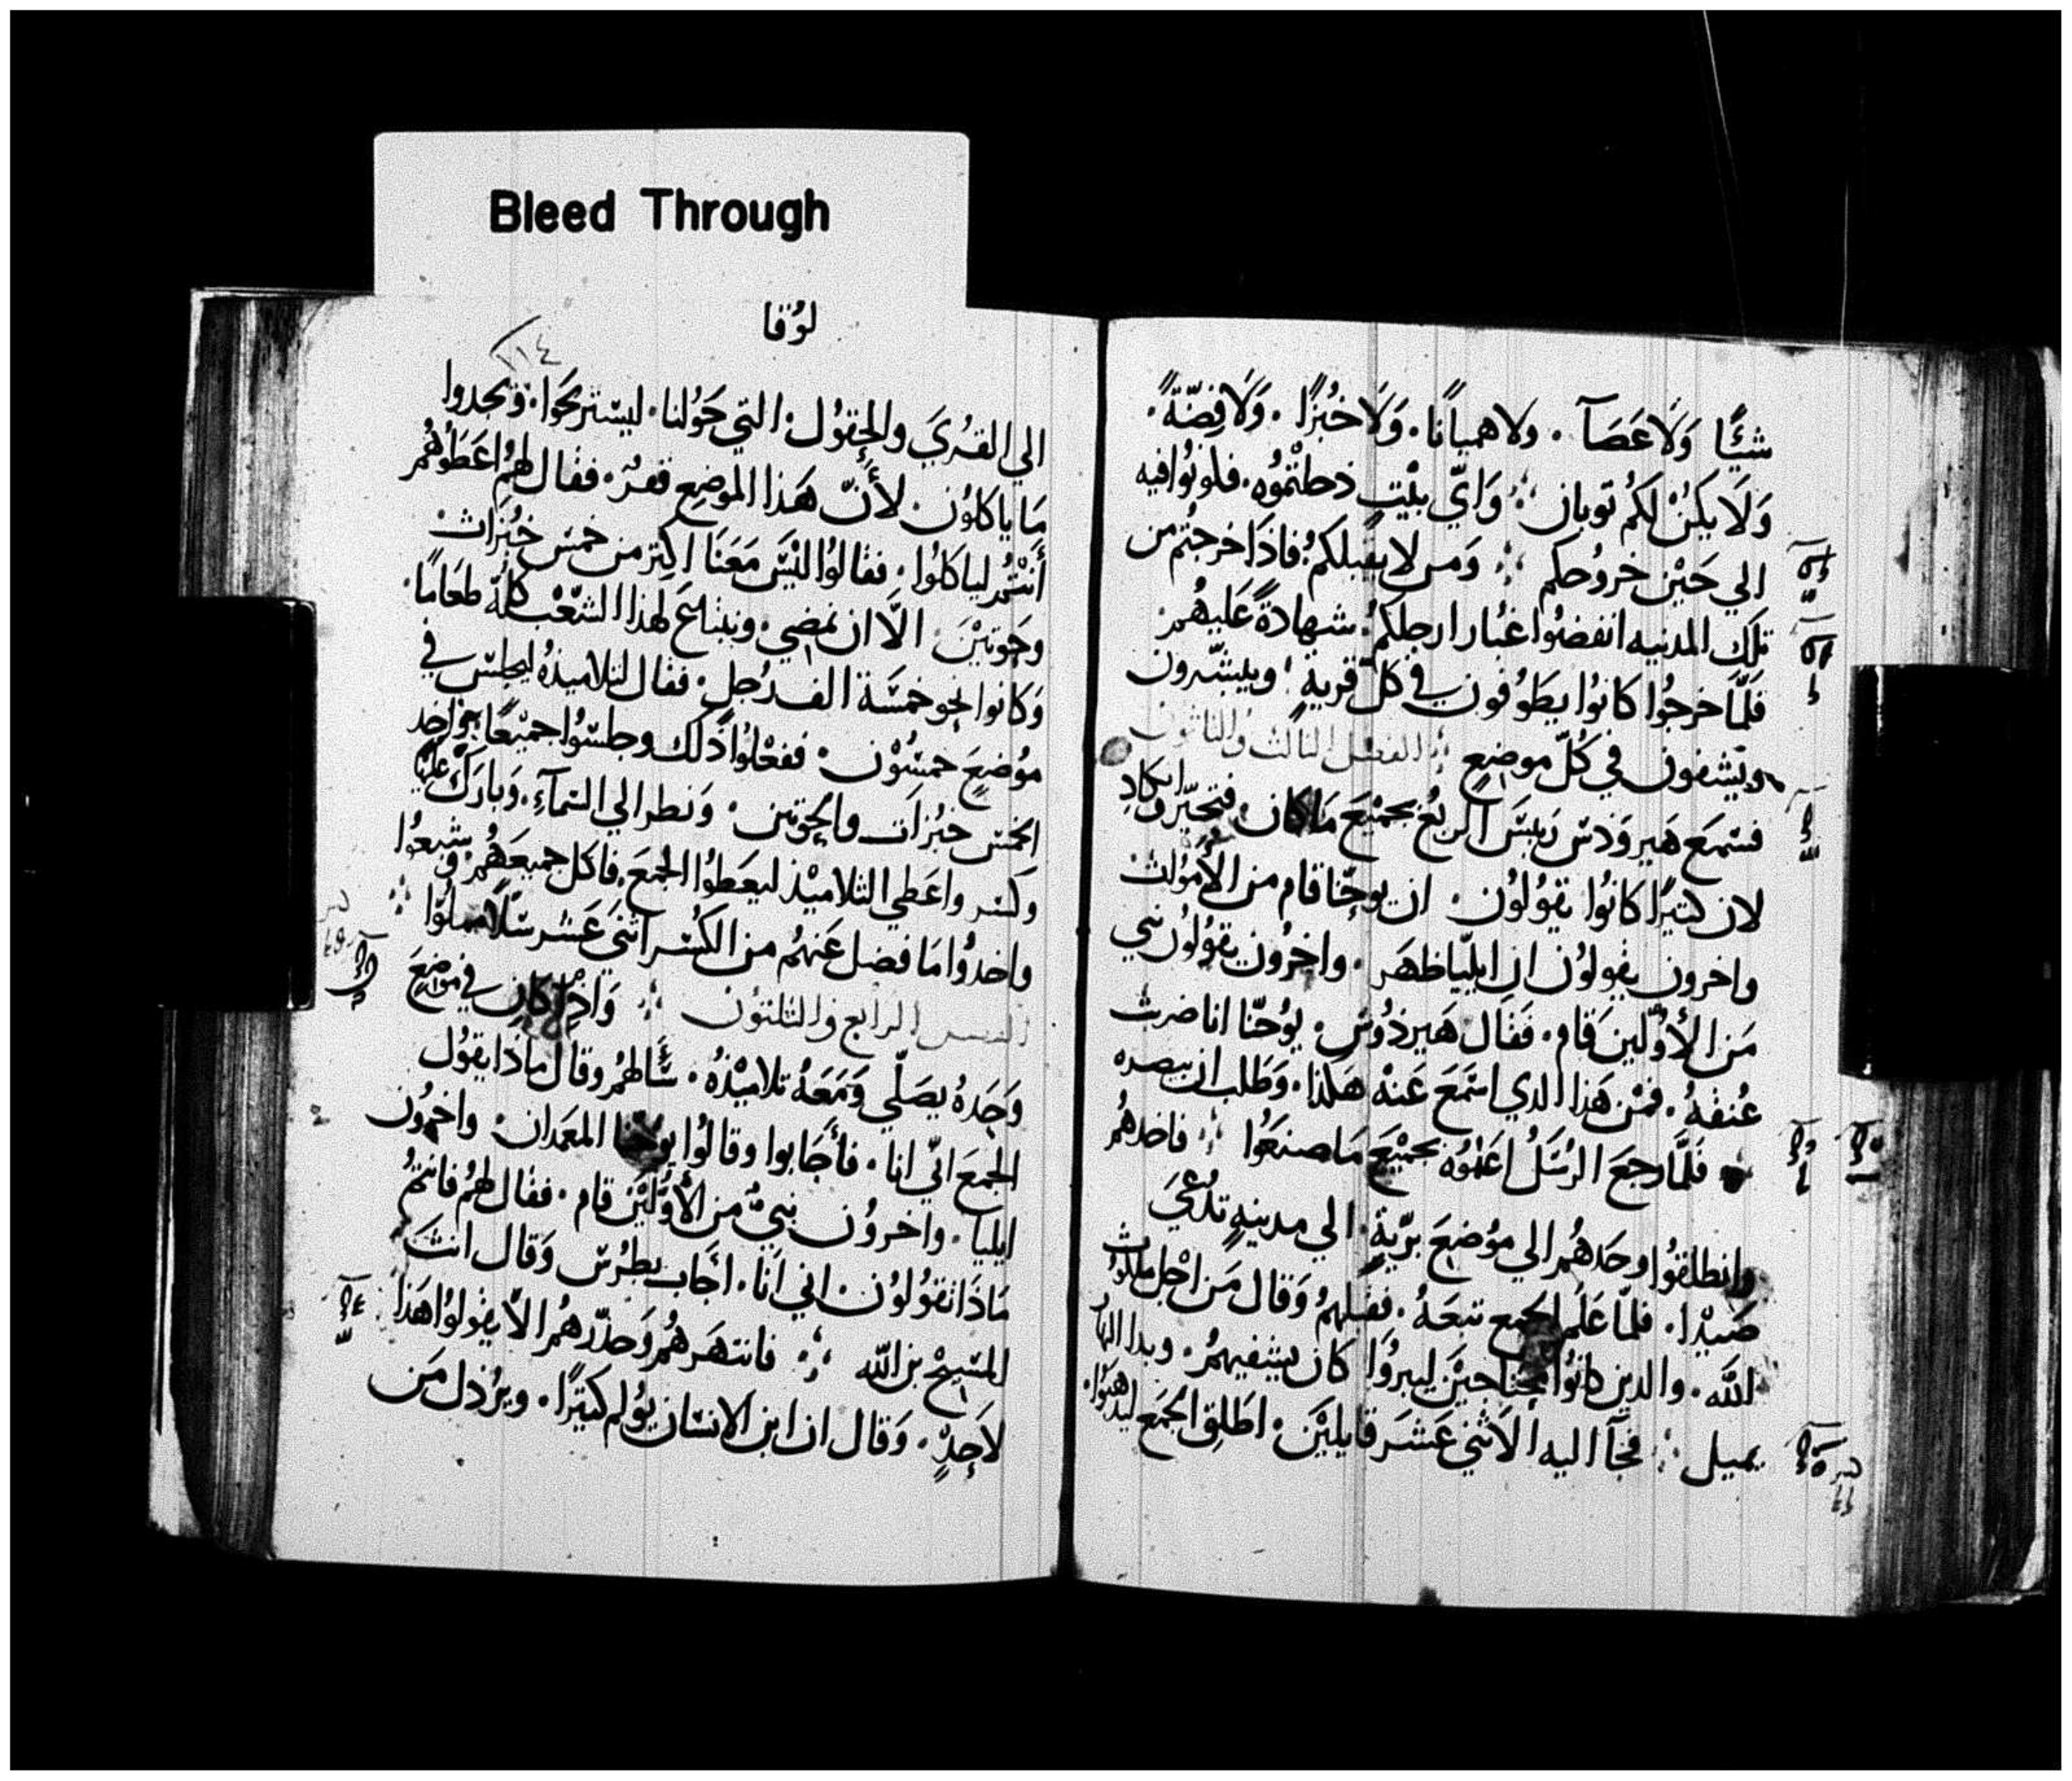 Bleed Through
شيًّا وَلَا عَصَآ . ولا هميانًا . وَلَا خُبزًا . وَلَا فِضّةً .
وَلَا يكنْ لكُم توبان وَايّ بيْتٍ دخلتُموُه . فكونوُا فيه
الي حَيْن خروُجكم وَمن لا يقبلكمُ فاذَا خرجتُم من
تلك المدنيه انفضوُا غبار ارجلكمُ . شهادةً عَليهُم
فَلَمَّا خرجُوا كانوُا يطَوُفون في كلّ قريةٍ وبيشّرون
ويَشفون في كُلّ موضعٍ الفصل الثالث والثلثون
فسَمع هَيروَدسَ رَييسَ الربُع بجميْعَ مَا كان . فتحيّر وكادِ
لان كتيرًا كانوُا يقوُلوُن . ان يوحنّا قام من الأموُات
واخرون يقولوُن ان ايليّا ظهَر . واخرُون يقوُلوُن نبي
مَن الأوّلين قام . فقَال هَيرذوُس . يوُحنّا انا ضربت
عُنقهُ . فمْن هَذا الدي اسَمَع عَنْه هَكذا . وَطَلب ان يبصره
فَلَمَّا رجعَ الرُسَلُ اعَلموُه بجميْعَ مَا صنعَوُا فاخدهُم
وانطلقوُا وحَدهُم الي موُضعَ برّيةٍ . الي مدينهٍ تدُعيَ
صَيْدا . فلمّا عَلم الجمع تبعَهُ . فقبلهمُ وَقال مَن اجْل ملكوُت
الله . والدين كانوُا محتاجيْن ليبروُا كان يشفيهمُ . وبدا النهارُ
يميل فجآ اليه الاثني عَشرَ قايليْن . اطَلِق الجَمع ليدهبوُا .
لوُقا
٢١٤
الي القُريَ والحقوُل . التي حَوُلنا . ليسَتريحَوا . وَيجدوا
مَا ياكلوُن . لأنّ هَذا الموضِع قفرٌ . فقال لهمُ اعَطوُهُم
أنتُمُ لياكلوُا . فقالوُا ليْسَ مَعَنَا اكتر من خمسَ خبُزات
وحَوتيْن . الّا ان نمضي . ونبتاعَ لهذا الشعْب كلهّ طعَامًا .
وَكانوا نحو خمسَة الف رُجلٍ . فقال لتلاميذهُ ليجلسَ في
موُضعٍ خمسُوْن . ففعْلوُا ذلك وجلسَوُا جميْعًا . واخد
الخمسَ خبُزاَت والحوتين . وَنظر الي السَمآءِ . وَبارَك عليْها
وكسَر واعَطي التلاميْذ ليعَطوُا الجَمعَ . فاكل جميعَهُم وشبعوُا
واخدوُا مَا فضل عَنهمُ من الكسُر اثنيَ عَشر سَلًا مملوّا
الفصل الرابع والثلثون وَاذ كان في موُاضعَ
وَحَدهُ يصَلّي وَمَعَهُ تلاميْذهُ . سَألهمُ وقال مَاذا يقوُل
الجمعَ انّي انا . فأجَابوا وقالوُا يوحنا المعَمدان . واخروُن
ايليا . واخروُن نبيٌ من الأوّليْن قام . فقال لهمُ فانتمُ
مَاذَا تقوُلوُن . اني انَا . اجَاب بطرُس وَقال انت
المسَيحْ بن الله فانتهَرهُم وَحذّرهمُ الّا يقولوُا هَذا
لاَحدٍ . وَقال ان ابن الانسَان يوُلم كتيرًا . ويرُذل مَن